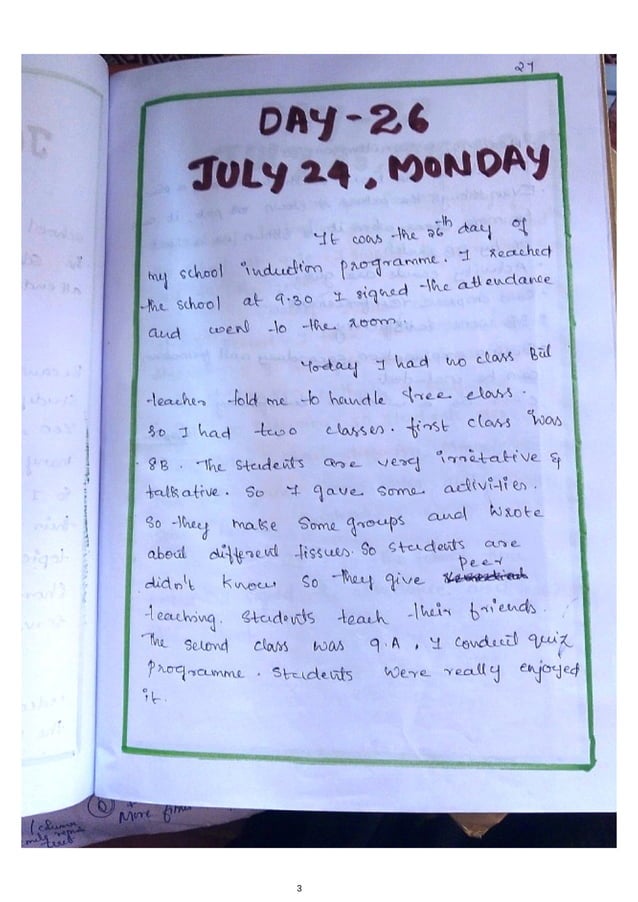 27
DAY-26
JULY 24, MONDAY
It was the 26th day of
my school induction programme. I reached
the school at 9.30 I signed the attendance
and went to the room.
Today I had no class But
teacher told me to handle free class.
So I had two classes. first class was
8B. The students are very irretative &
talkative. So I gave some activities.
So they make some groups and wrote
about different tissues. So students are
didn't know so they give peer
teaching. Students teach their friends.
The second class was 9.A, I conduct quiz
programme. Students were really enjoyed
it.
More
3